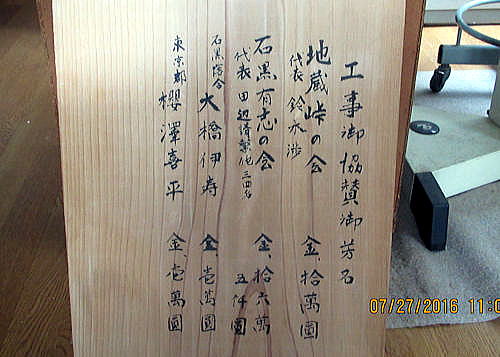 工事御協賛御芳名
地蔵峠の会 金、拾萬圓
代表 鈴木渉
石黒有志の会 金、拾六萬五仟圓
代表 田辺 他三四名
石黒落合
大橋伊寿 金、壱萬圓
東京都
櫻澤喜平 金、壱萬圓
07/27/2016 11:0